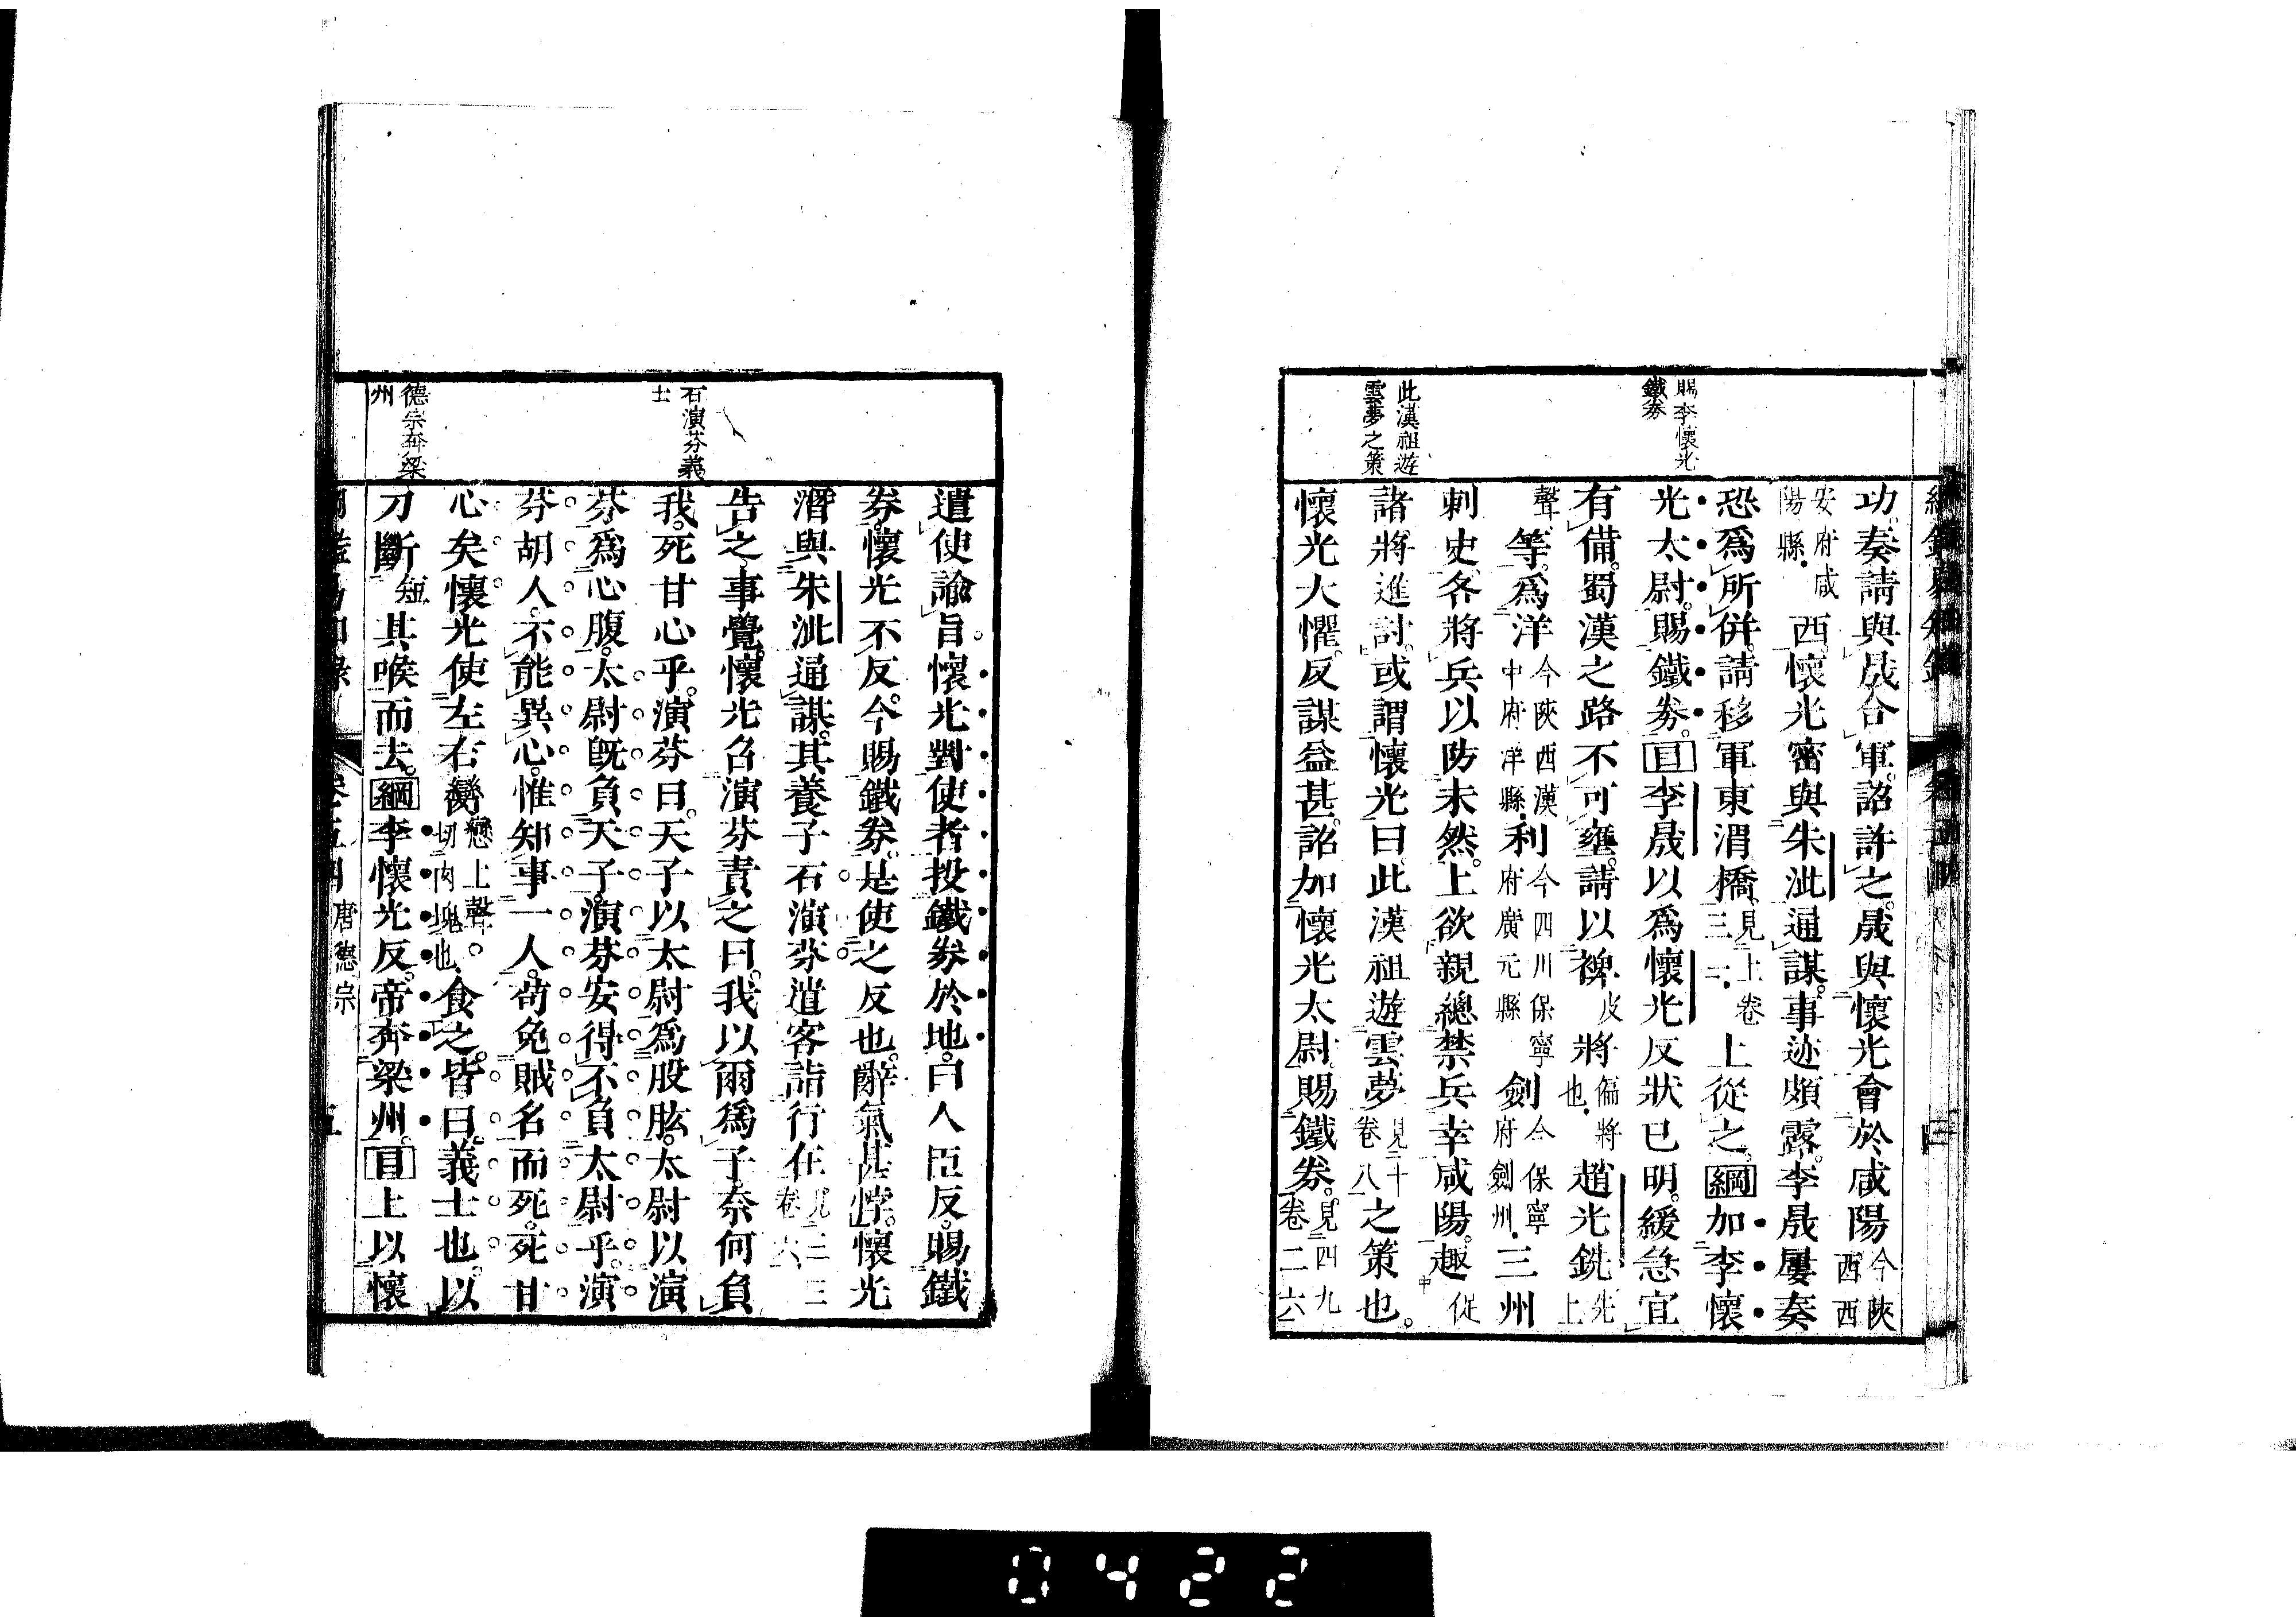 賜李懷光
鐵券
此漢祖遊
雲夢之策
功。奏請與晟合軍。詔許之。晟與懷光會於咸陽今陝西西
安府咸陽縣西。懷光密與朱泚通謀。事迹頗露。李晟屢奏
恐爲所併。請移軍東渭橋。見上卷三二上從之。綱加李懷
光太尉。賜鐵券。目李晟以爲懷光反狀已明。緩急宜
有備。蜀漢之路不可壅。請以裨皮將偏將也趙光銑先上
聲等。爲洋今陝西漢中府洋縣利今四川保寧府廣元縣劍今保寧府劍州三州
刺史。各將兵以防未然。上欲親總禁兵幸咸陽。趣促
諸將進討。或謂懷光曰。此漢祖遊雲夢見十卷八之策也。
懷光大懼。反謀益甚。詔加懷光太尉。賜鐵券。見四九卷二六
石演芬義
士
德宗奔梁
州
遣使諭旨。懷光對使者投鐵券於地。曰人臣反。賜鐵
券。懷光不反。今賜鐵券。是使之反也。辭氣甚悖。懷光
潛與朱泚通謀。其養子石演芬遣客詣行在見三三卷六
告之。事覺。懷光召演芬責之曰。我以爾爲子。奈何負
我。死甘心乎。演芬曰。天子以太尉爲股肱。太尉以演
芬爲心腹。太尉既負天子。演芬安得不負太尉乎。演
芬胡人。不能異心。惟知事一人。苟免賊名而死。死甘
心矣。懷光使左右臠戀上聲切肉塊也食之。皆曰。義士也。以
刀斷短其喉而去。綱李懷光反。帝奔梁州。目上以懷
唐德宗
0422